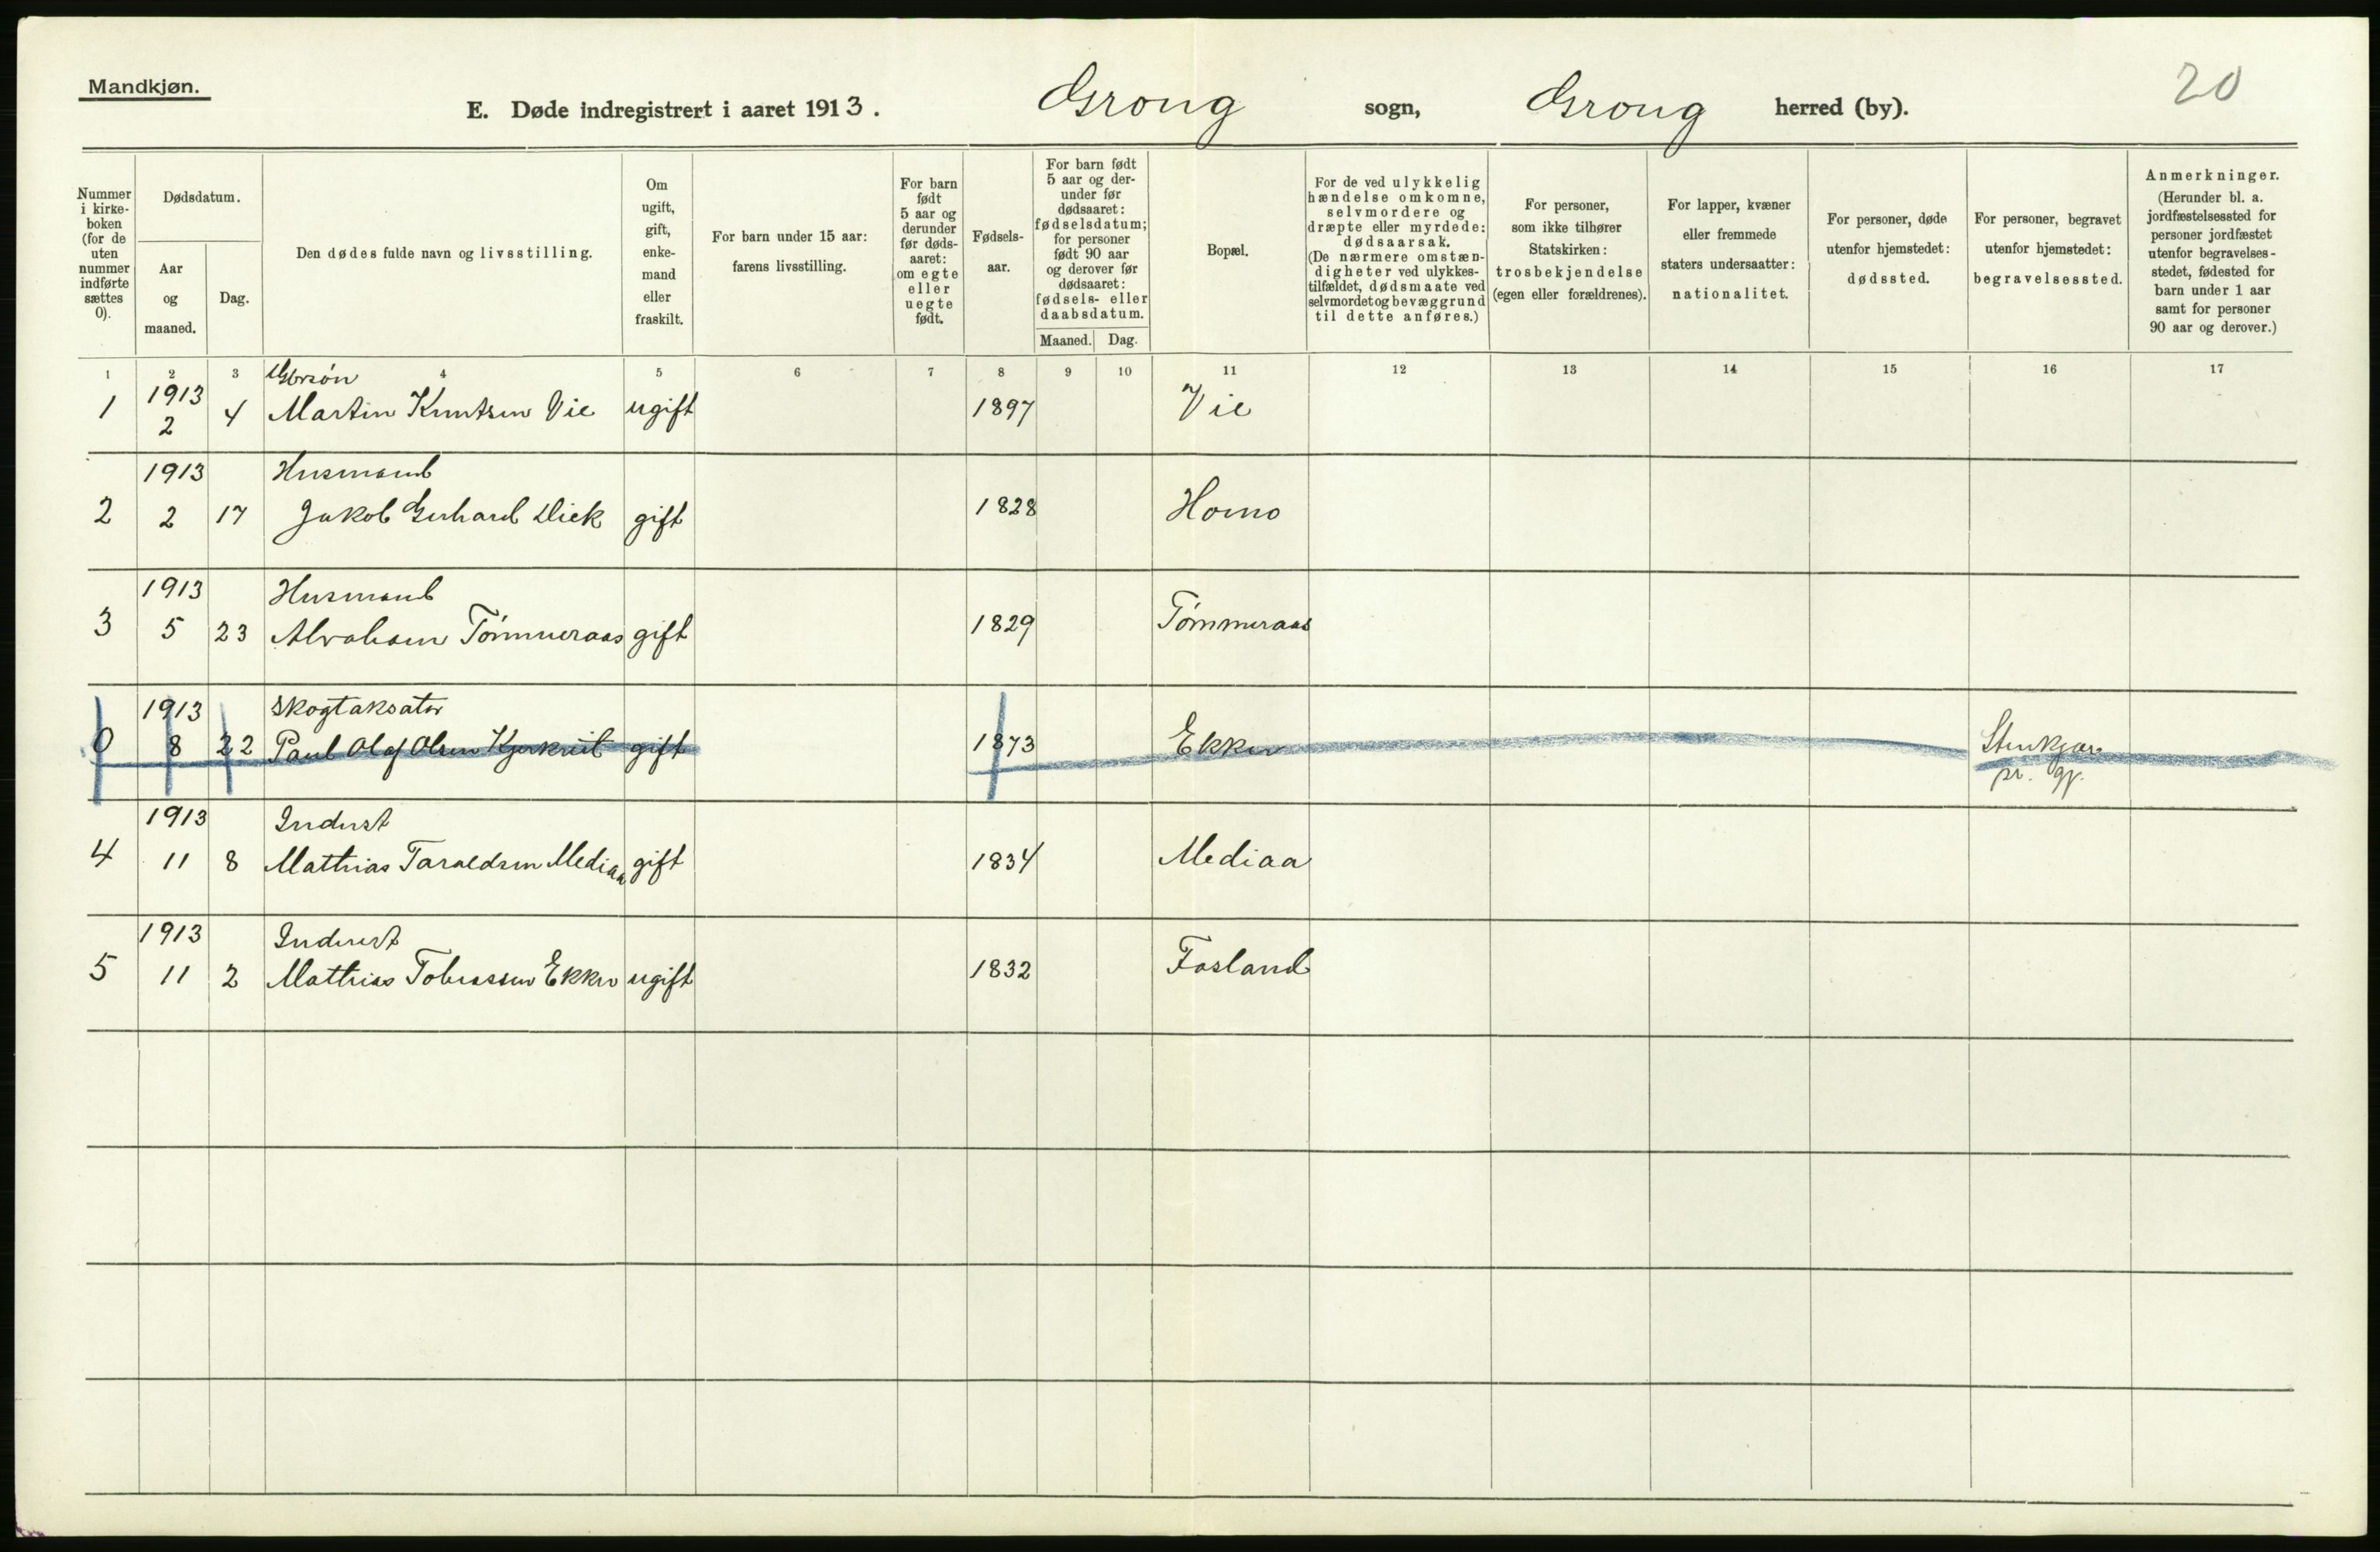 Mandkjøn.
20
E. Døde indregistrert i aaret 1913. Grong sogn, Grong herred (by).
Nummer i kirke-boken (for de uten nummer indførte sættes 0).
Dødsdatum.
Aar og maaned.
Dag.
Den dødes fulde navn og livsstilling.
Om ugift, gift, enke-mand eller fraskilt.
For barn under 15 aar: farens livsstilling.
For barn født 5 aar og derunder før døds-aaret: om egte eller uegte født.
Fødsels-aar.
For barn født 5 aar og der-under før dødsaaret: fødselsdatum; for personer født 90 aar og derover før dødsaaret: fødsels- eller daabsdatum.
Maaned.
Dag.
Bopæl.
For de ved ulykkelig hændelse omkomne, selvmordere og dræpte eller myrdede: dødsaarsak. (De nærmere omstæn-digheter ved ulykkes-tilfældet, dødsmaate ved selvmordet og bevæggrund til dette anføres.)
For personer, som ikke tilhører Statskirken: trosbekjendelse (egen eller forældrenes).
For lapper, kvæner eller fremmede staters undersaatter: nationalitet.
For personer, døde utenfor hjemstedet: dødssted.
For personer, begravet utenfor hjemstedet: begravelsessted.
Anmerkninger. (Herunder bl. a. jordfæstelsessted for personer jordfæstet utenfor begravelses-stedet, fødested for barn under 1 aar samt for personer 90 aar og derover.)
1 2 3 4 5 6 7 8 9 10 11 12 13 14 15 16 17
1913
1 2 4 Martin Knutsen Vie ugift 1897 Vie
1913 Husmand
2 2 17 Jakob Gerhard Diek gift 1828 Homo
1913 Husmand
3 5 23 Abraham Tømmeraas gift 1829 Tømmeraas
1913 Skogtaksator
0 8 22 Paul Olaf Olsen gift 1873 Ekker Stenkjær
pr. gj.
1913 Inderst
4 11 8 Mathias Taraldsen Mediaa gift 1834 Mediaa
1913 Inderst
5 11 2 Mathias Tobiassen Ekker ugift 1832 Fosland